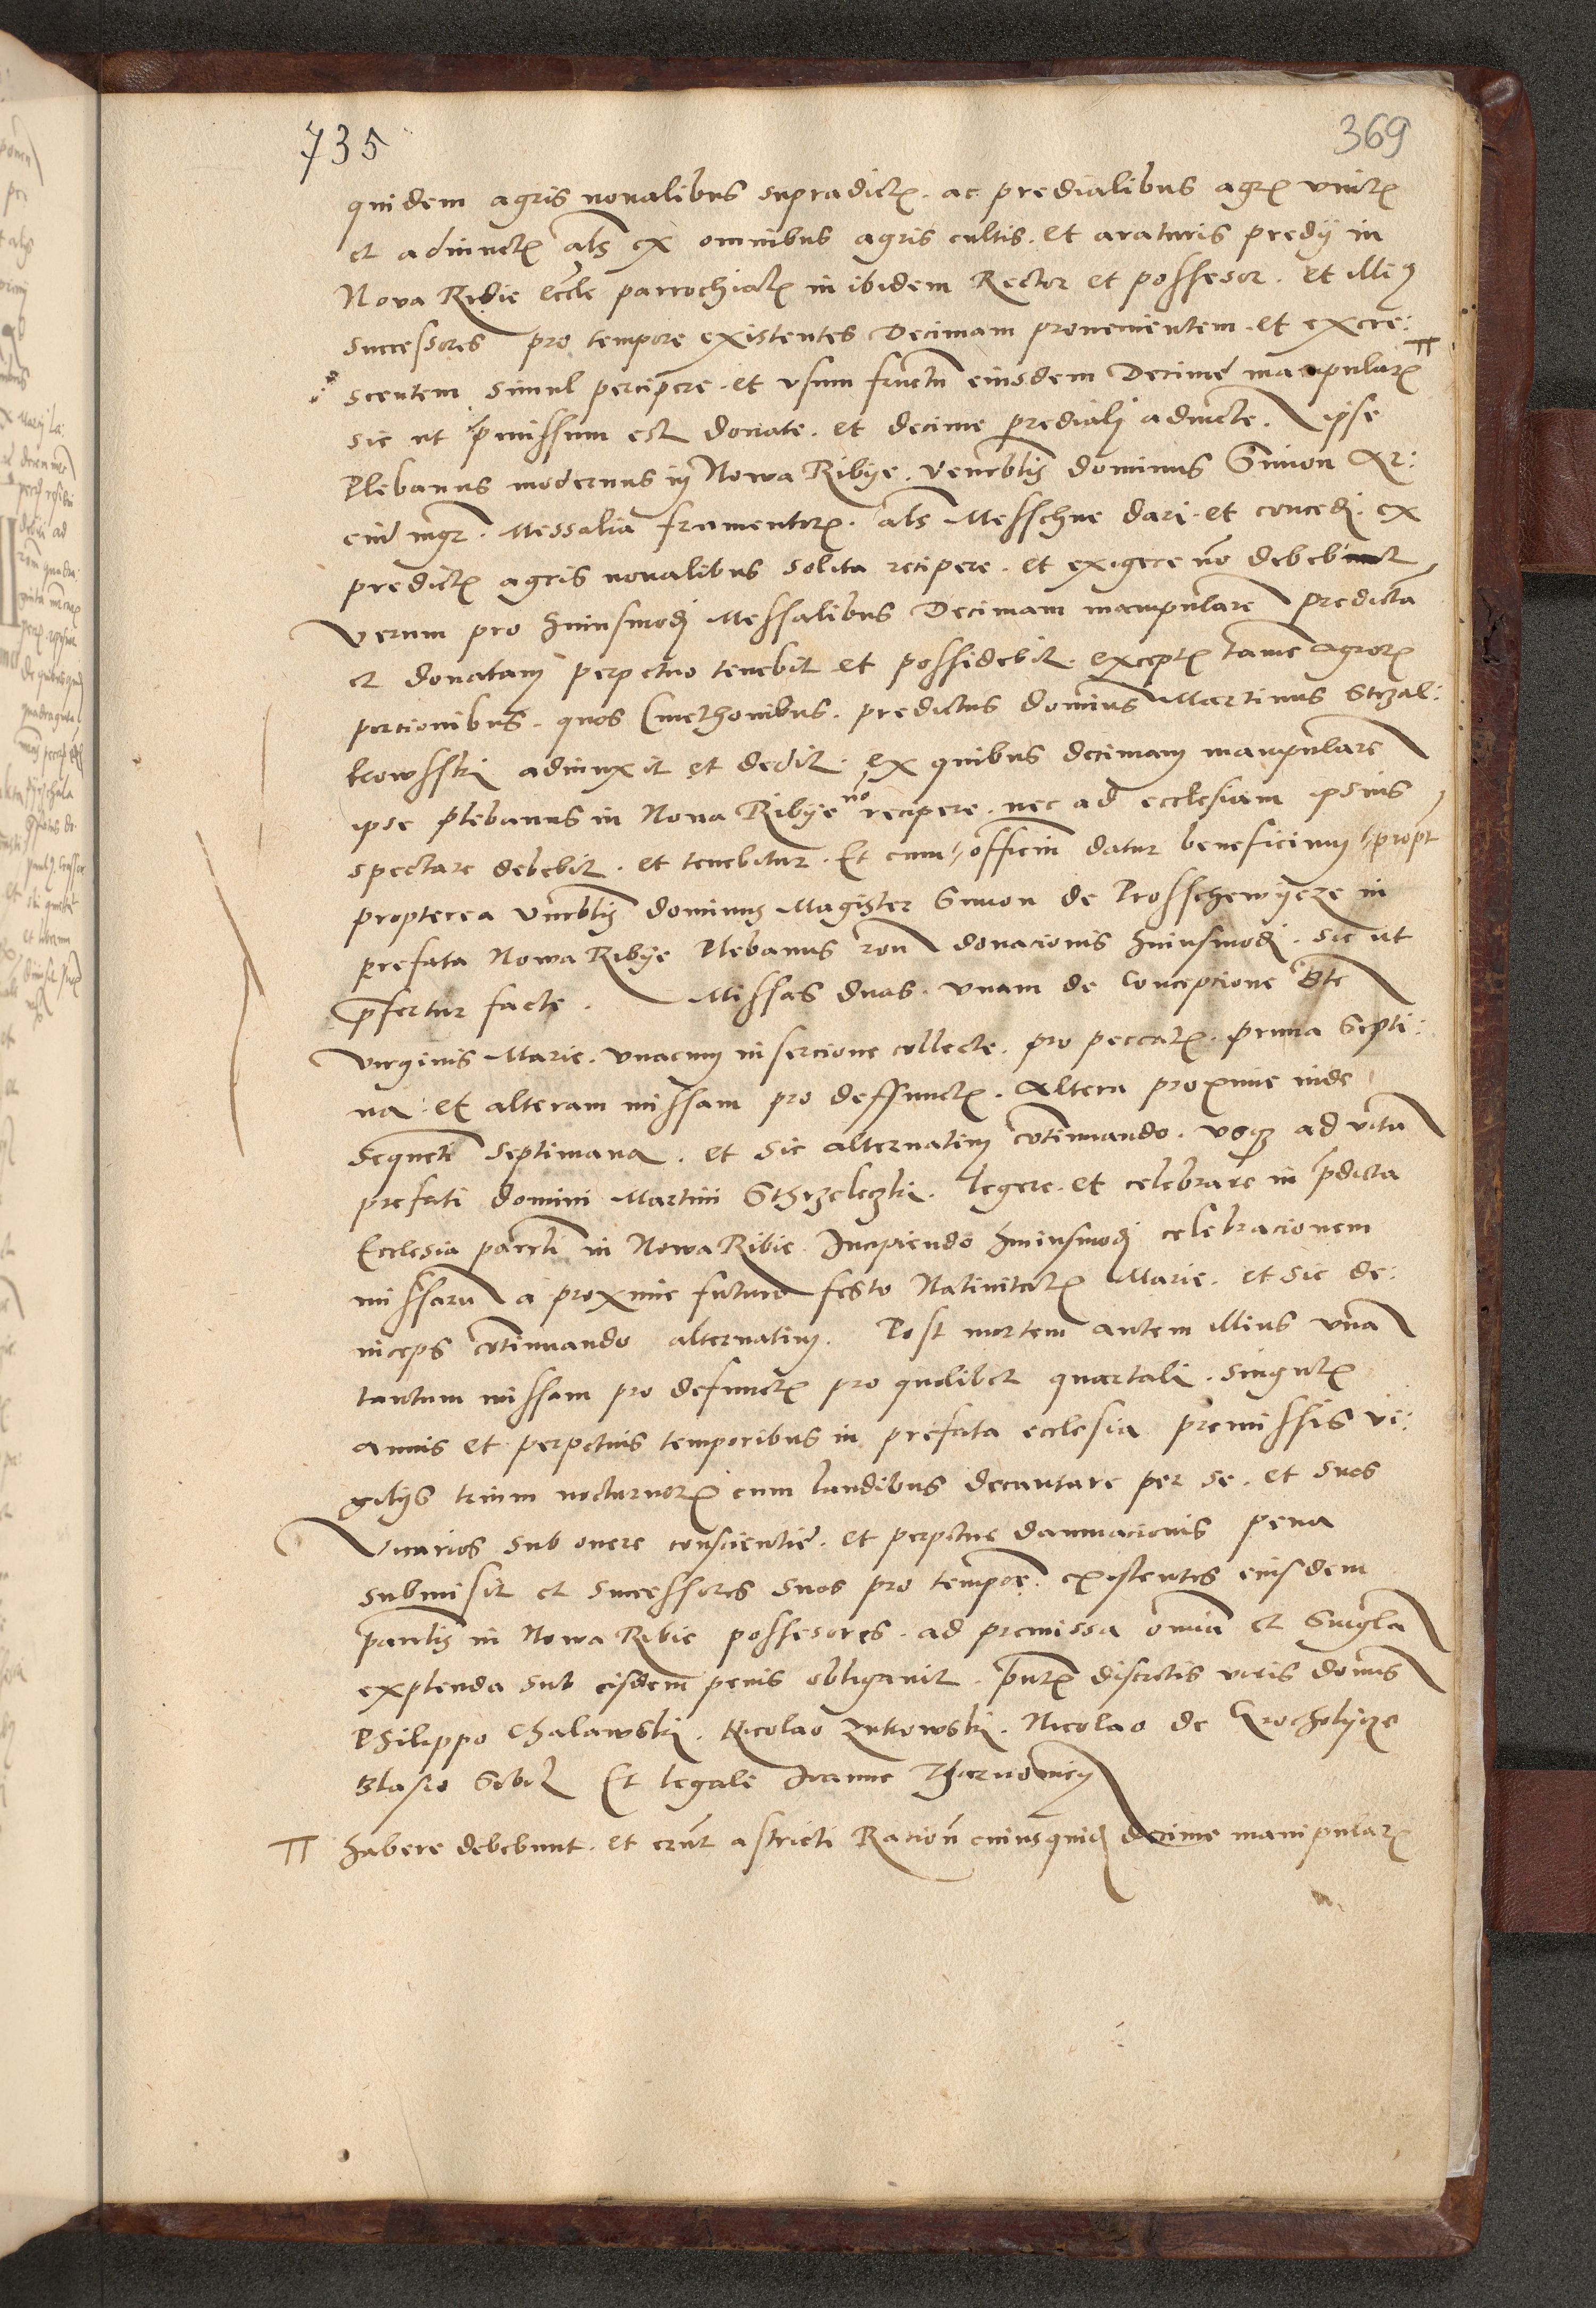 735
369
quidem agris noualibus supradictꝭ. ac predialibus agrꝭ vnictꝭ
et adiunctꝭ als ex omnibus agris cultis. et araturis predij in
Nova Ribie eccle parrochialꝭ in ibidem Rector et possesor. et illiꝰ
successores pro tempore existentes Decimam prouenientem. et excre:
scentem simul percipere. et vsum fructu eiusdem Decime manipularꝭ π
sic ut pmissum est donate. et decime prediali adiuncte. ipse
Plebanus modernus in Nowa Ribye. Venerblis dominus Simon Ar:
ciu mgr. Messalia frumentorꝭ. als Messchne dari. et concedi. ex
predictꝭ agris noualibus solita recipere. et exigere no debebit
verum pro huiusmodi Messalibus Decimam manipulare predicta
et donatam perpetuo tenebit et possidebit. exceptꝭ tame agrorꝭ
portionibus. quos Cmethonibus. predictus dominus Martinus Strzal:
kowsski adiunxit et dedit. ex quibus decimam manipulare
ipse plebanus in Noua Ribye no recipere. nec ad ecclesiam ipsius
spectare debebit. et tenebitur. Et cum officiu datur beneficium propt
propterea vnerblis dominus Magister Simon de Prosschewycze in
prefata Nowa Ribye Plebanus ron donacionis huiusmodi. sic ut
pfertur facte. Missas duas. vnam de Concepcione Bte
virginis Marie. vnacum insercione collecte. pro peccatꝭ. prima Septi:
na. et alteram missam pro deffunctꝭ. altera proxime inde
sequenti Septimana. et sic alternatim cotinuando. vsqꝫ ad vita
prefati domini Martini Sthrzeleczki. legere. et celebrare in pdicta
Ecclesia parrli in Nowa Ribie. Incipiendo huiusmodi celebracionem
missaru a proxime futuro festo Natiuitatꝭ Marie. et sic de:
inceps cotinuando alternatim. Post mortem autem illius vna
tantum missam pro defunctꝭ pro quolibet quartali. singulꝭ
annis et perpetuis temporibus in prefata ecclesia premissis vi:
gilijs trium nocturnorꝭ cum laudibus decantare per se. et suos
Vicarios sub onere conscientie. et perpetue damnacionis pena
submisit et successores suos pro tempore existentes eiusdem
parrlis in Nowa Ribie possesores. ad premissa omnia et Singla
explenda sub eisdem penis obligauit. pntꝭ discretis viris domis
Philippo Chalawski. Nicolao Zukowski. Nicolao de Grocholycze
Blasio Et legali Joanne
π habere debebunt. et erunt astricti Ration cuiusquidem decime manipularꝭ